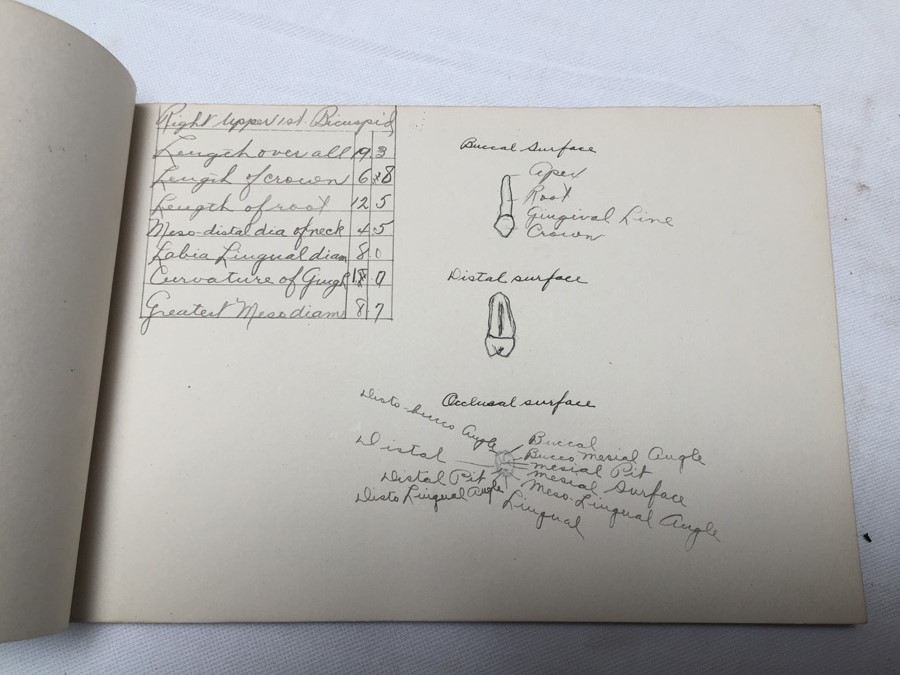 Right Upper 1st. Bicuspid
Length over all 19 3
Length of crown 6 8
Length of root 12 5
Meso-distal dia of neck 4.5
Labia Lingual diam 8 0
Curvature of Gingi
Greatest Meso diam 8 7
Buccal Surface
Apex
Root
Gingival Line
Crown
Distal surface
Occlusal surface
Disto-bucco Angle
Buccal
Bucco Mesial Angle
Distal
Mesial Pit
Mesial Surface
Distal Pit
Meso-Lingual Angle
Disto Lingual Angle
Lingual